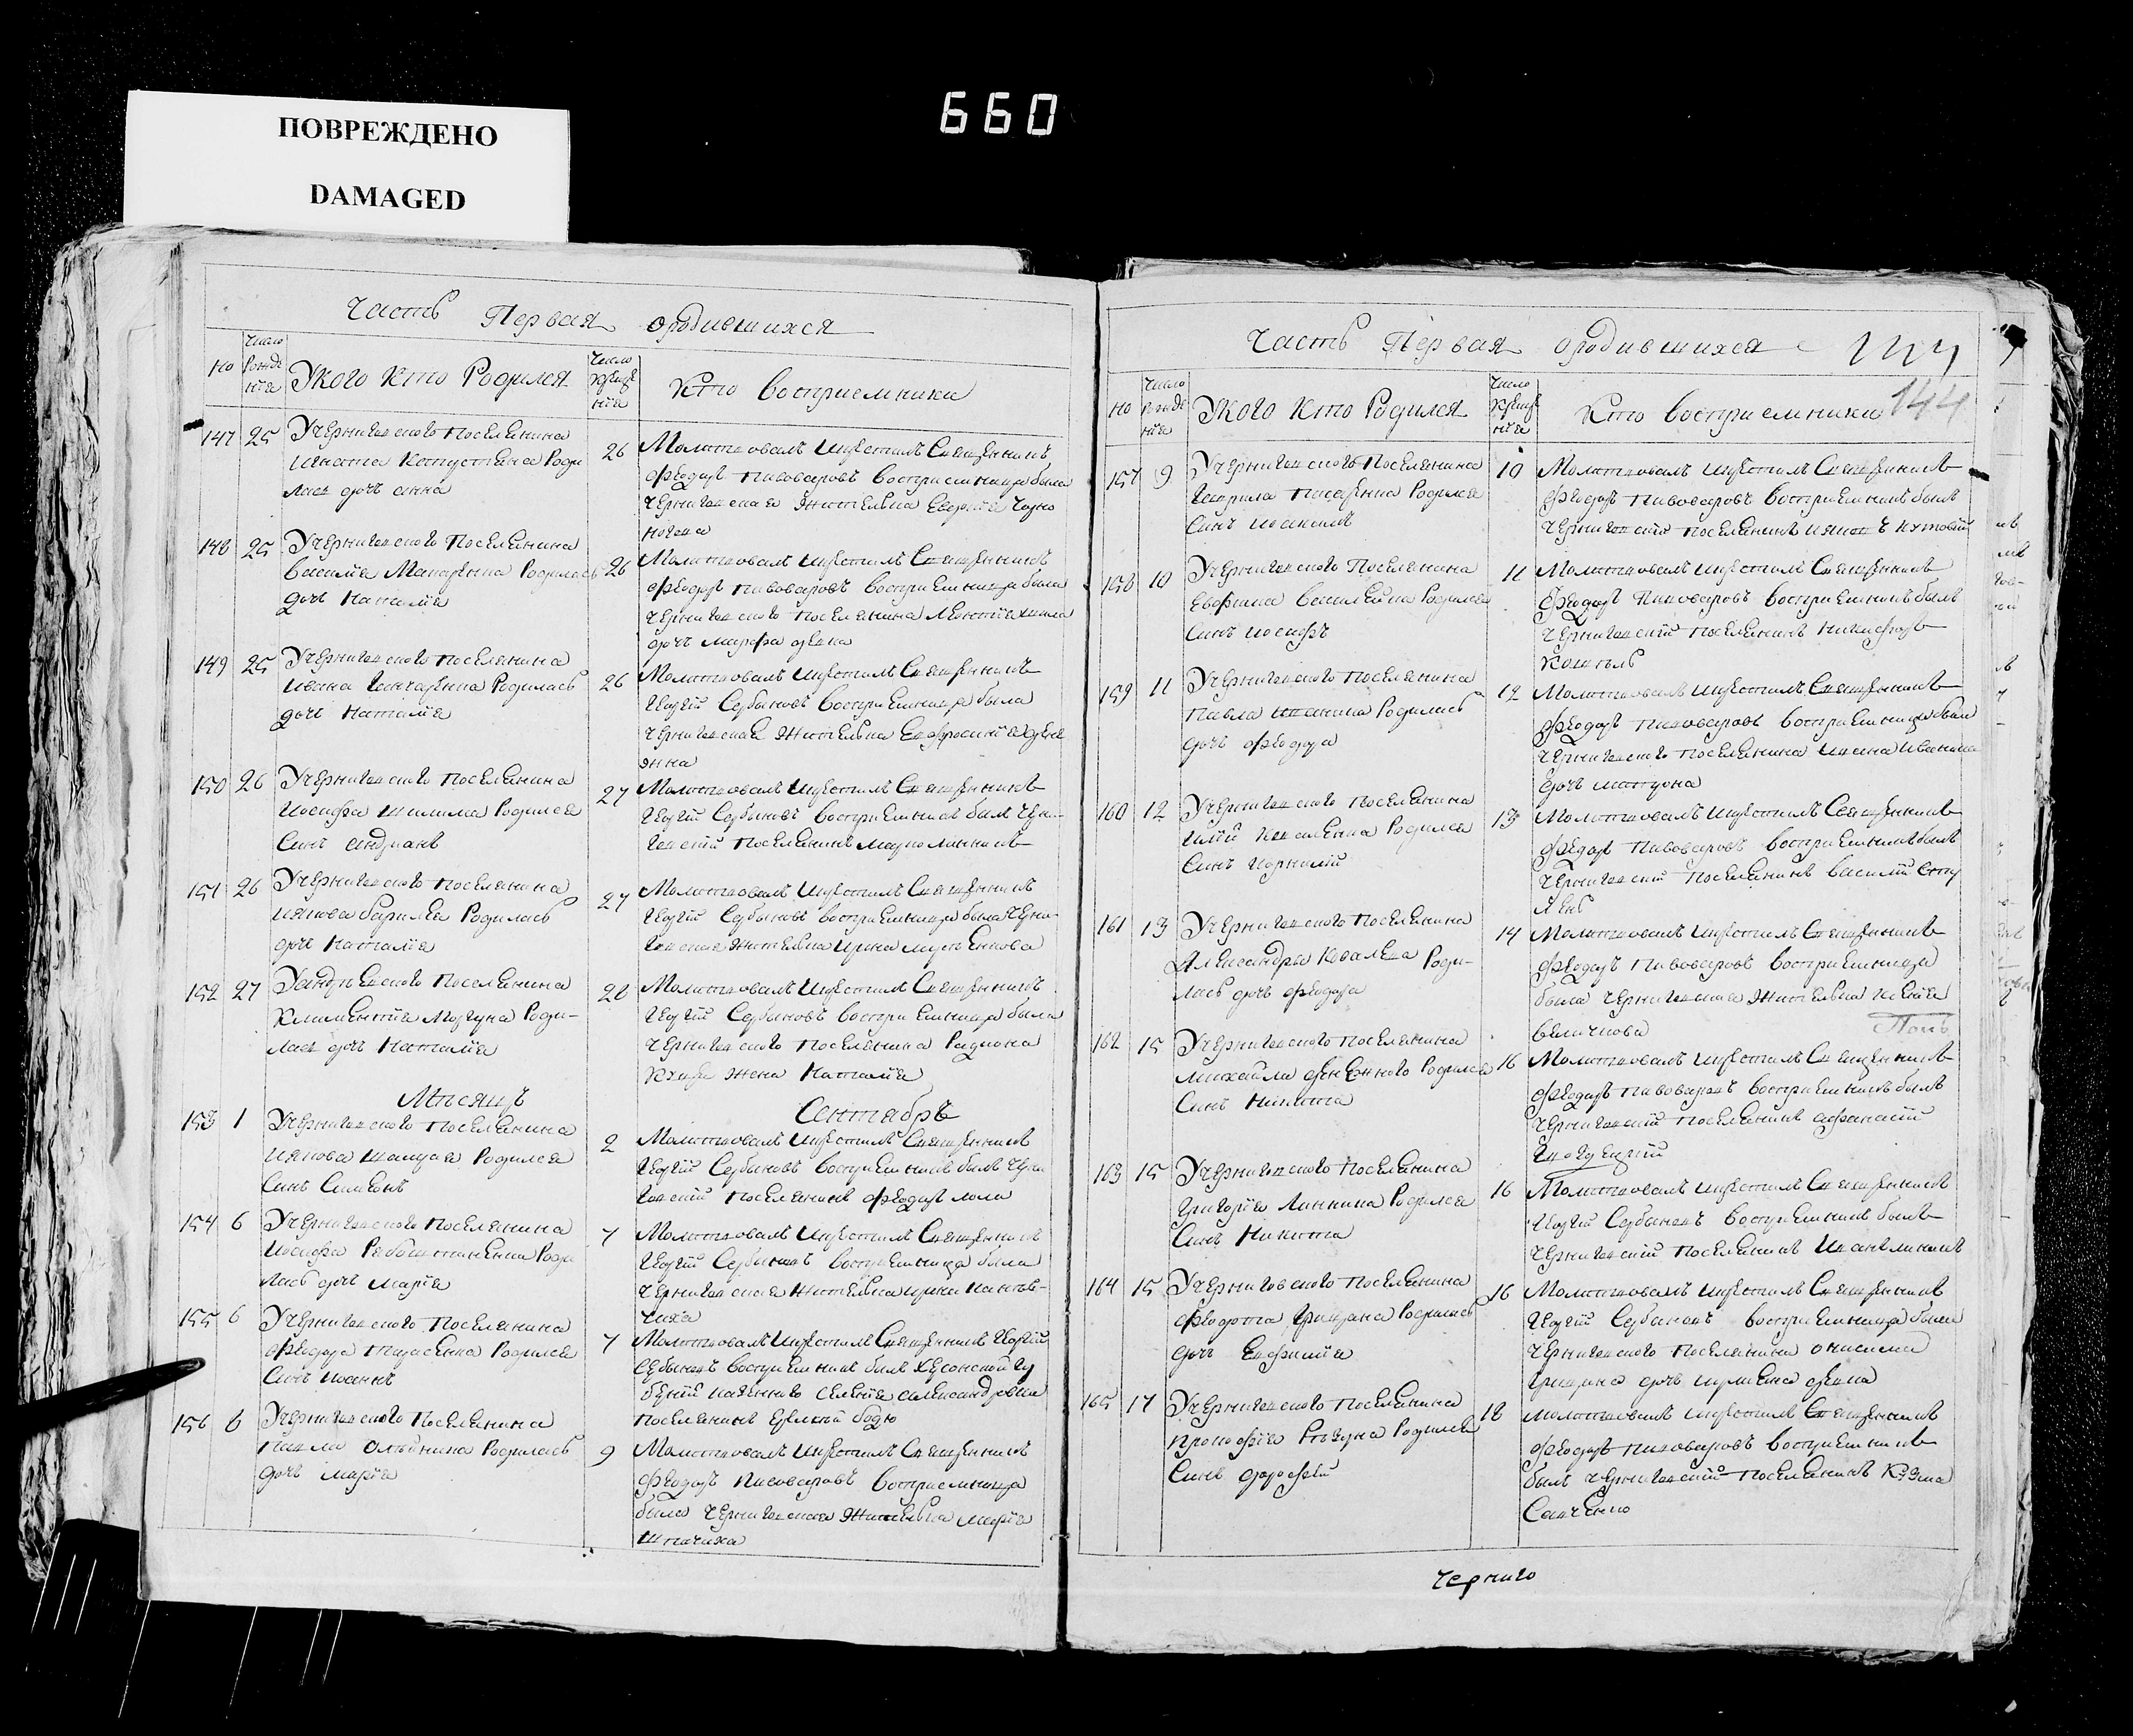 660
ПОВРЕЖДЕНО
DAMAGED
Часть Первая о родившихся
Но
Число рожде нія
У кого кто Родился
Число креще нія
Кто восприемники
147 25 У Черниговского Поселянина
Игната Капустяна Роди
лась дочь анна
26 Молитвовалъ и крестилъ Священникъ
Феодоръ Пивоваровъ восприемница была
Черниговская Жителька Евдокія Черно
148 25 У Черниговского Поселянина
василія Макаренка Родилась
дочь Наталія
26 Молитвовалъ и крестилъ Священникъ
Феодоръ Пивоваровъ восприемница была
Черниговского Поселянина Леонтія
дочь марфа девка
149 25 У Черниговского Поселянина
Ивана Гончаренка Родилась
дочь Наталія
26 Молитвовалъ и крестилъ Священникъ
Георгій Сербиновъ восприемница была
Черниговская Жителька Евфросинія
150 26 У Черниговского Поселянина
Иосифа Шилима Родился
Синъ андріанъ
27 Молитвовалъ и крестилъ Священникъ
Георгій Сербиновъ восприемникъ былъ Черни-
говскій Поселянинъ марко линникъ
151 26 У Черниговского Поселянина
Иякова Родилась
дочь Наталія
27 Молитвовалъ и крестилъ Священникъ
Георгій Сербиновъ восприемница была Черни-
говская Жителька Ирина
152 27 У андреевского Поселянина
Климентія Моргуна Роди-
лась дочь Наталія
28 Молитвовалъ и крестилъ Священникъ
Георгій Сербиновъ восприемница была
Черниговского Поселянина Радиона
жена Наталія
Месяцъ Сентябръ
153 1 У Черниговского Поселянина
Иякова Родился
Синъ Симеонъ
2 Молитвовалъ и крестилъ Священникъ
Георгій Сербиновъ восприемникъ былъ Черни
говскій Поселянинъ Феодоръ лола
154 6 У Черниговского Поселянина
Иосифа Роди
лась дочь марія
7 Молитвовалъ и крестилъ Священникъ
Георгій Сербиновъ восприемница была
Черниговская Жителька ирина
155 6 У Черниговского Поселянина
Феодора Тарасенка Родился
Синъ Иоаннъ
7 Молитвовалъ и крестилъ Священникъ Георгій
Сербиновъ восприемникъ былъ Херсонской гу
берній казенного селенія александровка
Поселянинъ
156 8 У Черниговского Поселянина
Павла Олейника Родилась
дочь марія
9 Молитвовалъ и крестилъ Священникъ
Феодоръ Пивоваровъ восприемница
была Черниговская Жителька марія
Шпачиха
Часть Первая о родившихся
144
Но
Число рожде нія
У кого кто Родился
Число креще нія
Кто восприемники
157 9 У Черниговского Поселянина
Гаврила Писаренка Родился
Синъ иоакимъ
10 Молитвовалъ и крестилъ Священникъ
Феодоръ Пивоваровъ восприемникъ былъ
Черниговскій Поселянинъ
158 10 У Черниговского Поселянина
Евфима Родился
Синъ иосифъ
11 Молитвовалъ и крестилъ Священникъ
Феодоръ Пивоваровъ восприемникъ былъ
Черниговскій Поселянинъ Никифоръ
159 11 У Черниговского Поселянина
Павла Родилась
дочь Феодора
12 Молитвовалъ и крестилъ Священникъ
Феодоръ Пивоваровъ восприемница была
Черниговского Поселянина
дочь матрона
160 12 У Черниговского Поселянина
Иліи Родился
Синъ Корнилій
13 Молитвовалъ и крестилъ Священникъ
Феодоръ Пивоваровъ восприемникъ былъ
Черниговскій Поселянинъ василій
161 13 У Черниговского Поселянина
Александра Ковалева Роди-
лась дочь Феодора
14 Молитвовалъ и крестилъ Священникъ
Феодоръ Пивоваровъ восприемница
была Черниговская Жителька ксенія
величкова
162 15 У Черниговского Поселянина
михайла Родился
Синъ Никита
16 Молитвовалъ и крестилъ Священникъ
Феодоръ Пивоваровъ восприемникъ былъ
Черниговскій Поселянинъ афанасій
163 15 У Черниговского Поселянина
Григорія Линника Родился
Синъ Никита
16 Молитвовалъ и крестилъ Священникъ
Георгій Сербиновъ восприемникъ былъ
Черниговскій Поселянинъ Иванъ линникъ
164 15 У Черниговского Поселянина
Федота Грицана Родилась
дочь Евфимія
16 Молитвовалъ и крестилъ Священникъ
Георгій Сербиновъ восприемница была
Черниговского Поселянина онисима
Грицана дочь иулияна девка
165 17 У Черниговского Поселянина
Прокофія Родился
Синъ дорофей
18 Молитвовалъ и крестилъ Священникъ
Феодоръ Пивоваровъ восприемникъ
былъ Черниговскій Поселянинъ Козма
Савченко
Черниго